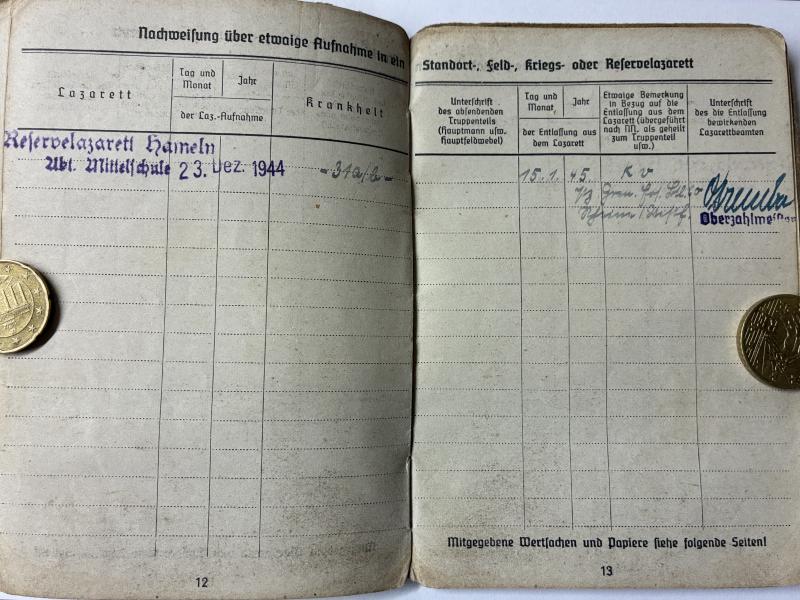 Nachweisung über etwaige Aufnahme in ein
Lazarett
Tag und
Monat
Jahr
der Laz.-Aufnahme
Krankheit
Reservelazarett Hameln
Abt. Mittelschule 23. Dez. 1944
- 31a/b -
12
Standort-, Feld-, Kriegs- oder Reservelazarett
Unterschrift
des absendenden
Truppenteils
(Hauptmann usw.
Hauptfeldwebel)
Tag und
Monat
Jahr
der Entlassung aus
dem Lazarett
Etwaige Bemerkung
in Bezug auf die
Entlassung aus dem
Lazarett (übergeführt
nach M. als geheilt
zum Truppenteil
usw.)
Unterschrift
des die Entlassung
bewirkenden
Lazarettbeamten
15.1. 45. kv
Gren.
Oberzahlmeister
Mitgegebene Wertsachen und Papiere siehe folgende Seiten!
13